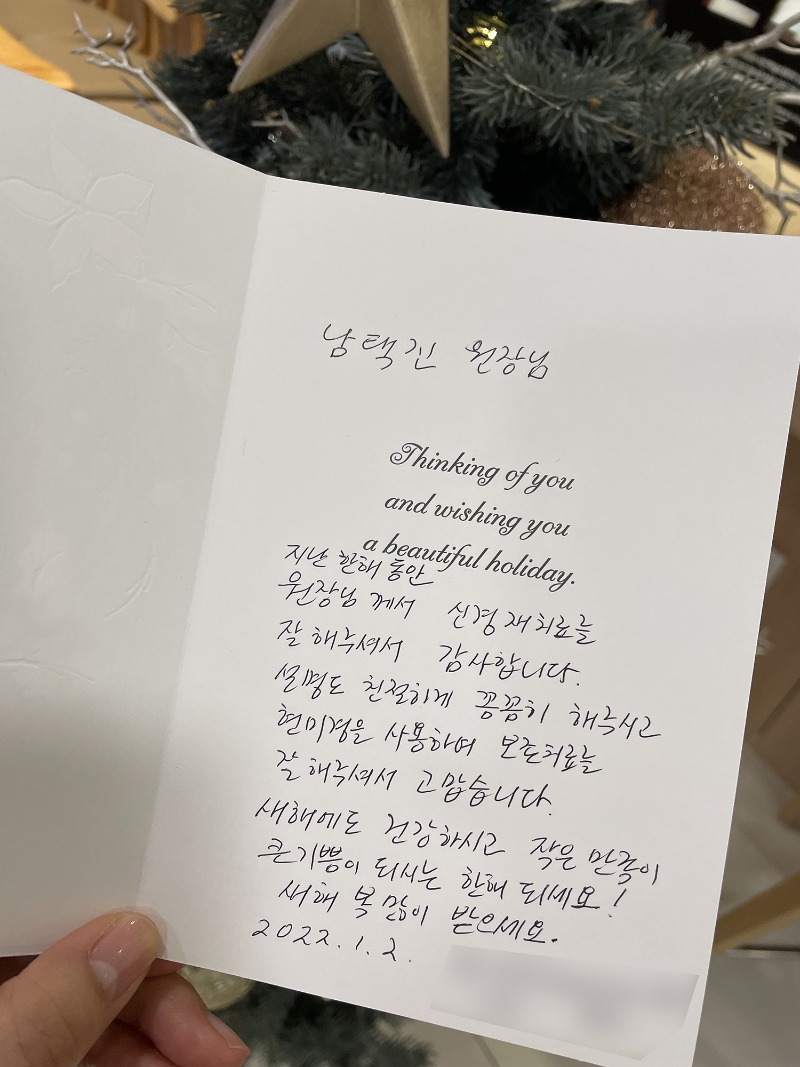 남택진 원장님
Thinking of you
and wishing you
a beautiful holiday.
지난 한해 동안
원장님 께서 신경 재치료를
잘 해주셔서 감사합니다.
설명도 친절하게 꼼꼼히 해주시고
현미경을 사용하며 보존치료를
잘 해주셔서 고맙습니다.
새해에도 건강하시고 작은 만족이
큰기쁨이 되시는 한해 되세요!
새해 복 많이 받으세요.
2022.1.2.